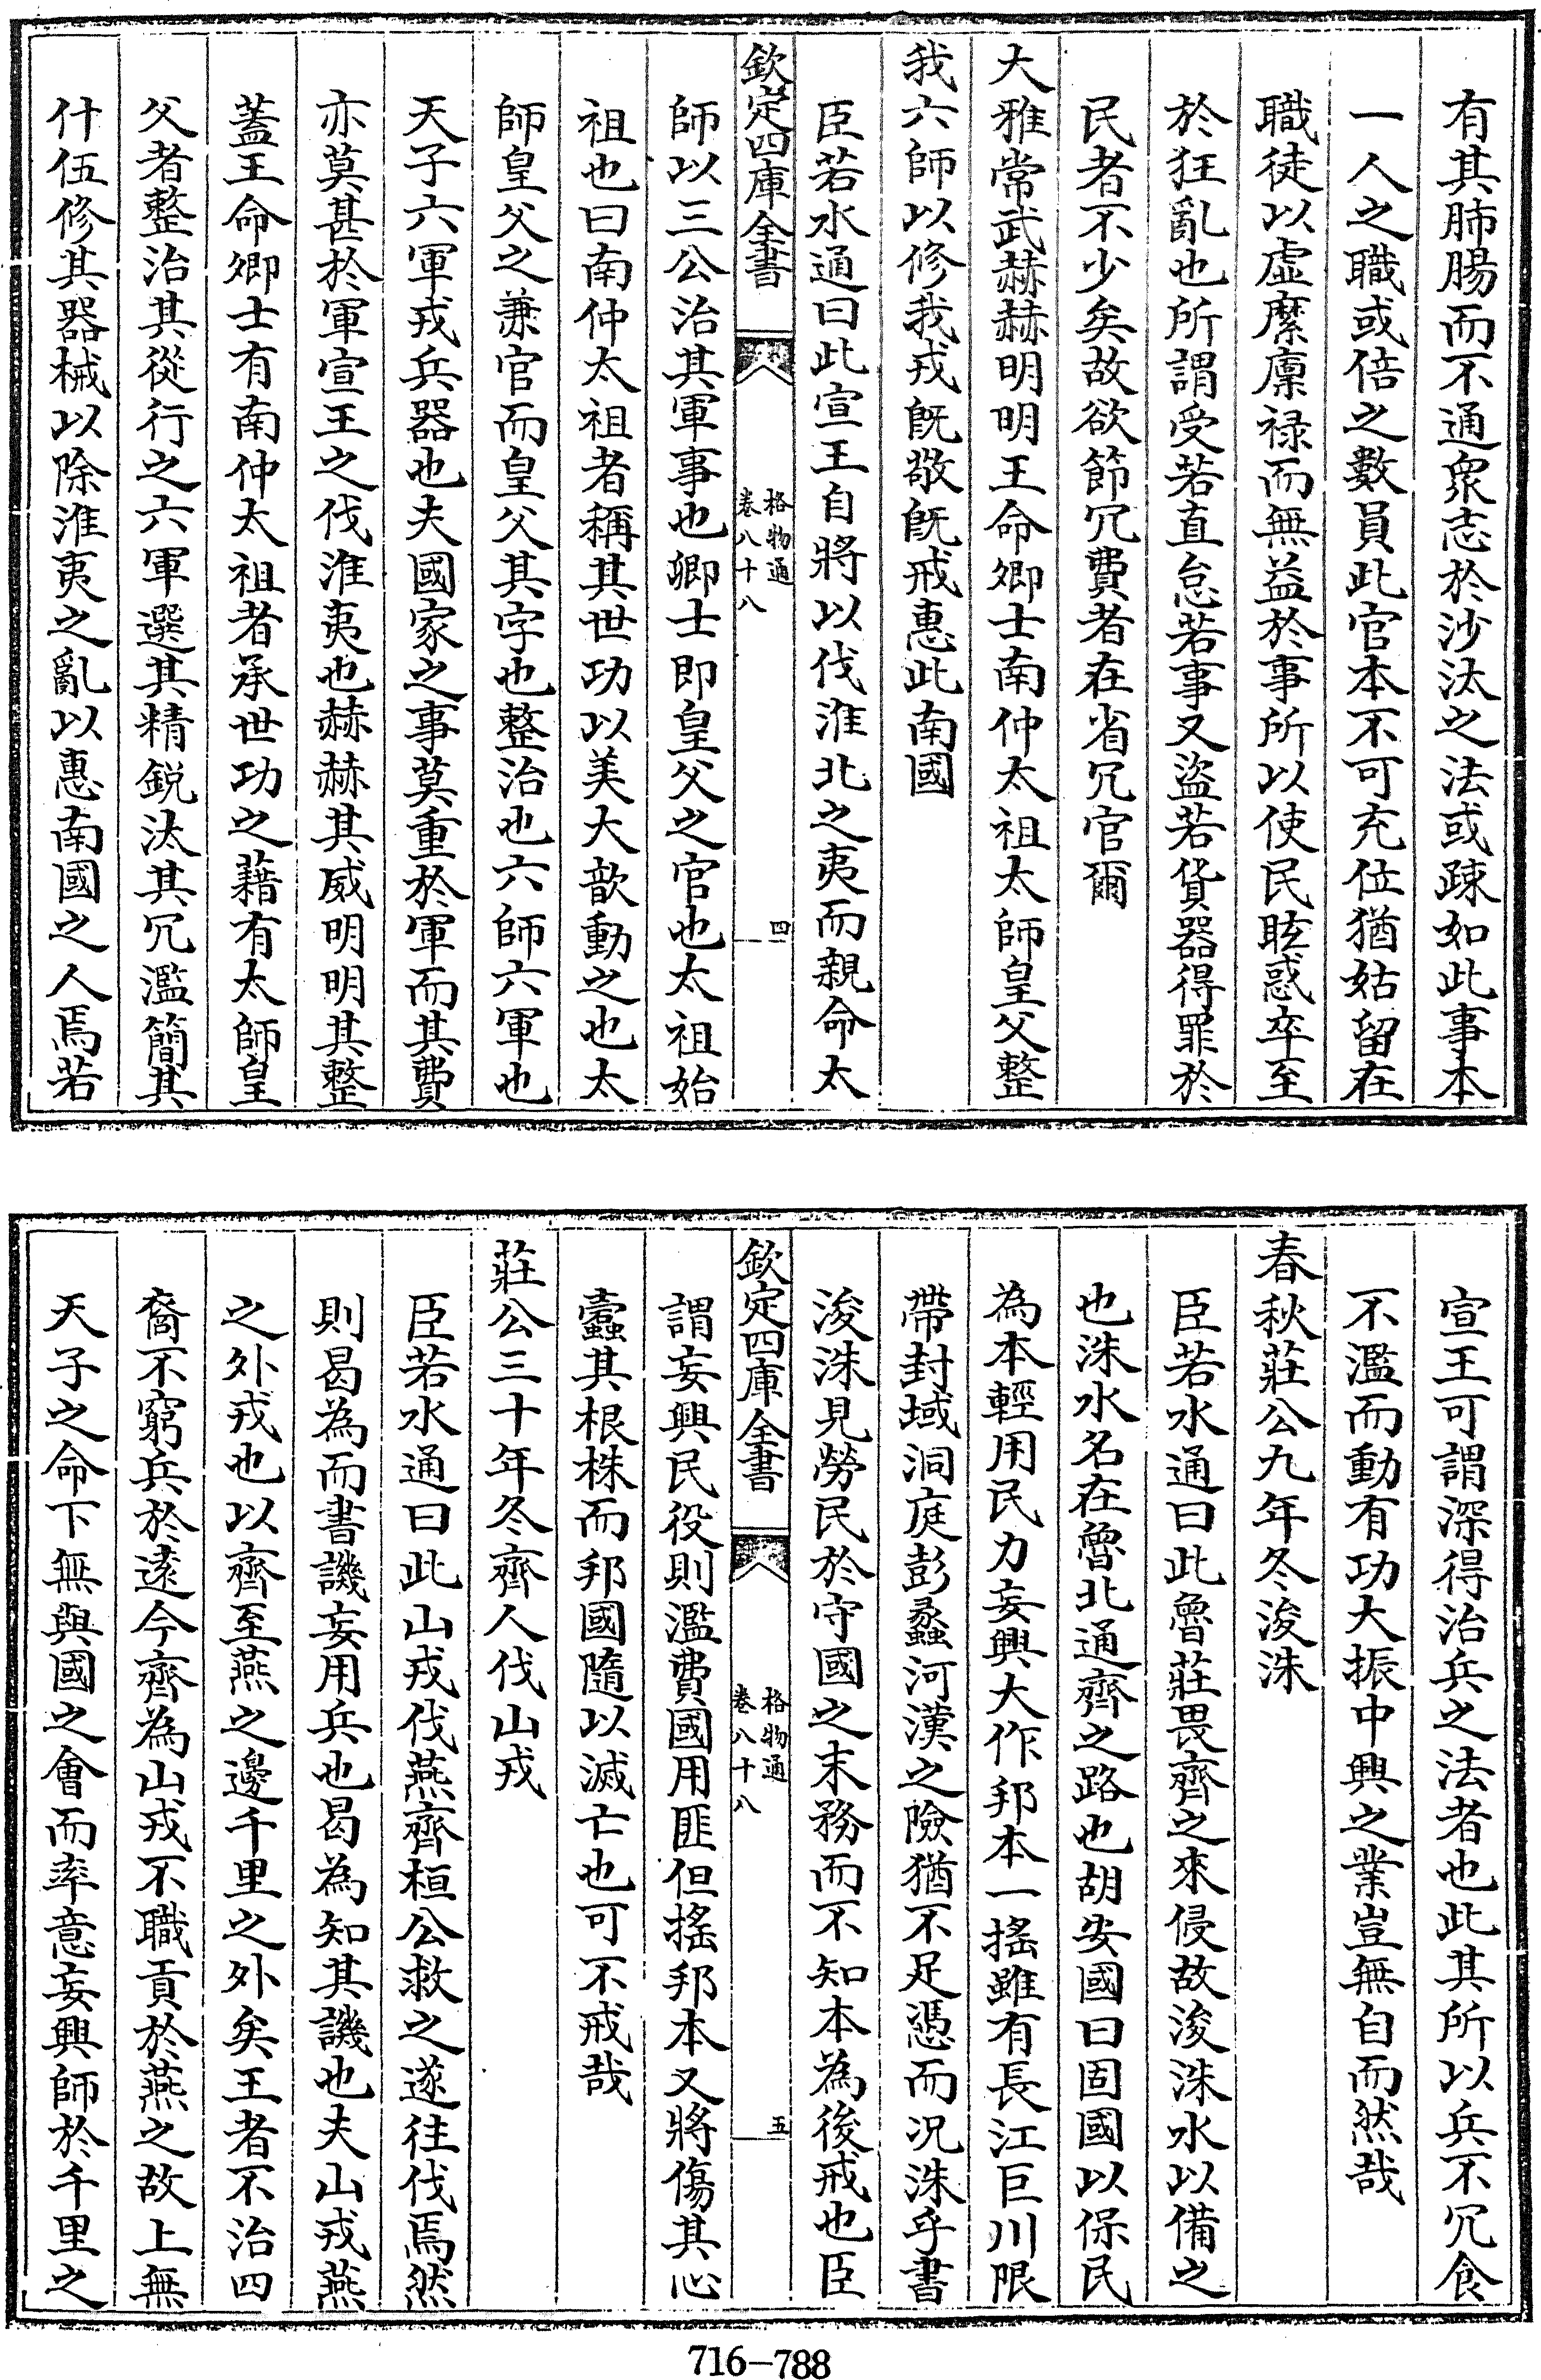 有其肺腸而不通衆志於沙汰之法或疎如此事本
一人之職或倍之數員此官本不可充位猶姑留在
職徒以虛縻廩禄而無益於事所以使民眩惑卒至
於狂亂也所謂受若直怠若事又盜若貨器得罪於
民者不少矣故欲節冗費者在省冗官爾
大雅常武赫赫明明王命卿士南仲太祖太師皇父整
我六師以修我戎既敬既戒惠此南國
臣若水通曰此宣王自將以伐淮北之夷而親命太
欽定四庫全書
格物通
卷八十八
四
師以三公治其軍事也卿士即皇父之官也太祖始
祖也曰南仲太祖者稱其世功以美大歆動之也太
師皇父之兼官而皇父其字也整治也六師六軍也
天子六軍戎兵器也夫國家之事莫重於軍而其費
亦莫甚於軍宣王之伐淮夷也赫赫其威明明其整
蓋王命卿士有南仲太祖者承世功之藉有太師皇
父者整治其從行之六軍選其精鋭汰其冗濫簡其
什伍修其器械以除淮夷之亂以惠南國之人焉若
宣王可謂深得治兵之法者也此其所以兵不冗食
不濫而動有功大振中興之業豈無自而然哉
春秋莊公九年冬浚洙
臣若水通曰此魯莊畏齊之來侵故浚洙水以備之
也洙水名在魯北通齊之路也胡安國曰固國以保民
為本輕用民力妄興大作邦本一搖雖有長江巨川限
帶封域洞庭彭蠡河漢之險猶不足憑而況洙乎書
浚洙見勞民於守國之末務而不知本為後戒也臣
欽定四庫全書
格物通
卷八十八
五
謂妄興民役則濫費國用匪但搖邦本又將傷其心
蠹其根株而邦國隨以滅亡也可不戒哉
莊公三十年冬齊人伐山戎
臣若水通曰此山戎伐燕齊桓公救之遂往伐焉然
則曷為而書譏妄用兵也曷為知其譏也夫山戎燕
之外戎也以齊至燕之邊千里之外矣王者不治四
裔不窮兵於逺今齊為山戎不職貢於燕之故上無
天子之命下無與國之會而率意妄興師於千里之
716-788